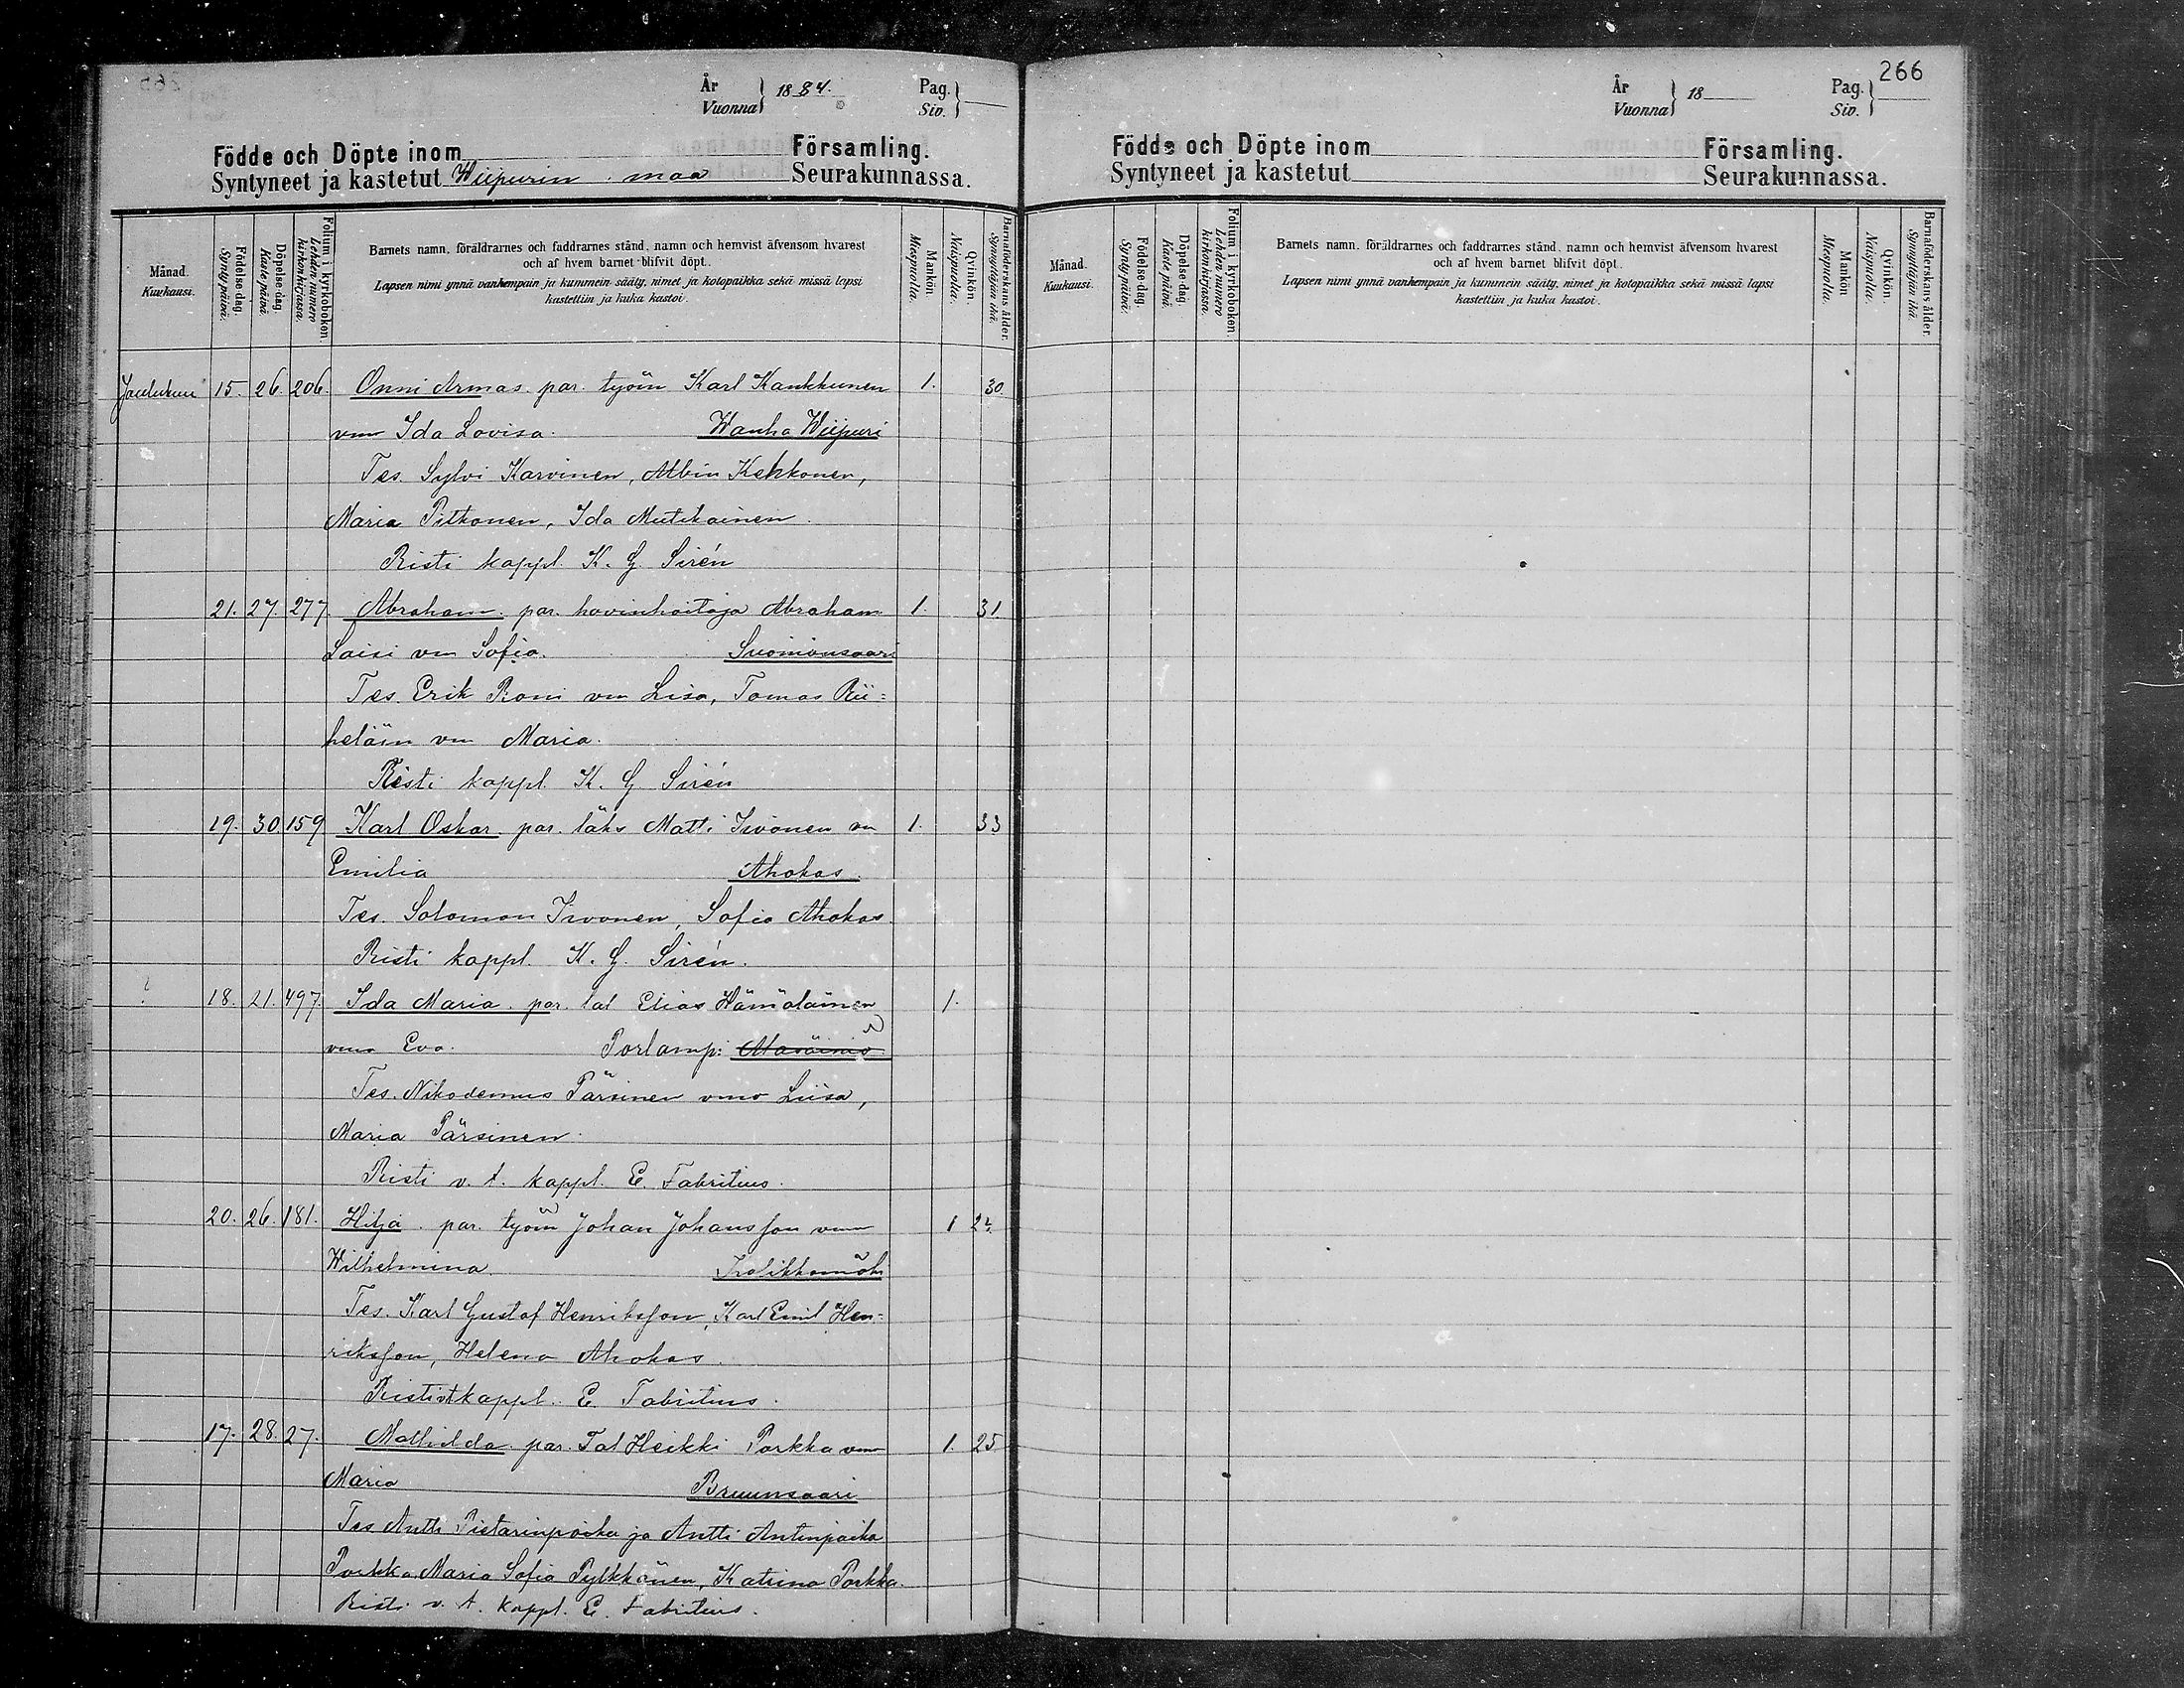 År
Vuonna } 1884.
Pag.
Siv. }
Födde och Döpte inom Församling.
Syntyneet ja kastetut Wiipurin maa Seurakunnassa.
Månad.
Kuukausi.
Födelse-dag.
Syntypäivä.
Döpelse-dag.
Kastepäivä.
Folium i kyrkoboken.
Lehden numero
kirkonkirjassa.
Barnets namn, föräldrarnes och faddrarnes stånd, namn och hemvist äfvensom hvarest
och af hvem barnet blifvit döpt.
Lapsen nimi ynnä vanhempain ja kummein sääty, nimet ja kotopaikka sekä missä lapsi
kastettiin ja kuka kastoi.
Mankön.
Miespuolia.
Qvinkön.
Naispuolia.
Barnaföderskans ålder.
Synnyttäjän ikä.
Joulukuu 15. 26. 206. Onni Armas. par. työm Karl Kankkunen 1. 30.
vmo Ida Lovisa. Wanha Wiipuri
Tes. Sylvi Karvinen, Albin Kekkonen,
Maria Pitkonen, Ida Mutikainen.
Risti kappl. K. G. Sirén
21. 27. 277. Abraham. par. hovinhoitaja Abraham 1. 31.
Loisi vm Sofia. Suomonsaari
Tes. Erik Romi vm Lisa, Tomas Rii=
heläin vm Maria.
Risti kappl. K. G Sirén
19. 30. 159 Karl Oskar. par. läks Matti Iivonen vm 1. 33
Emilia Ahokas.
Tes. Solomon Iivonen, Sofia Ahokas.
Risti kappl. K. G. Sirén.
? 18. 21. 497. Ida Maria. par. tal Elias Hämäläinen 1.
vmo Eva. Porlampi
Tes. Nikodemus Pärsinen vmo Liisa,
Maria Pärsinen.
Risti v. t. kappl. E. Fabritius.
20. 26. 181. Hilja. par. työm Johan Johansson vmo 1 22.
Wilhelmina.
Tes. Karl Gustaf Henriksson, Karl Emil Hen=
riksson, Helena Ahokas.
Risti vt kappl. E. Fabritius.
17. 28. 27. Mathilda. par. Tal Heikki Porkka vmo 1. 25
Maria Bruunsaari
Tes Antti Pietarinpoika ja Antti Antinpoika
Porkka, Maria Sofia Pylkkänen, Katrina Porkka.
Risti v. t. kappl. E. Fabritius.
266
År
Vuonna } 18
Pag.
Siv. }
Födde och Döpte inom Församling.
Syntyneet ja kastetut Seurakunnassa.
Månad.
Kuukausi.
Födelse-dag.
Syntypäivä.
Döpelse-dag.
Kastepäivä.
Folium i kyrkoboken.
Lehden numero
kirkonkirjassa.
Barnets namn, föräldrarnes och faddrarnes stånd, namn och hemvist äfvensom hvarest
och af hvem barnet blifvit döpt.
Lapsen nimi ynnä vanhempain ja kummein sääty, nimet ja kotopaikka sekä missä lapsi
kastettiin ja kuka kastoi.
Mankön
Miespuolia.
Qvinkön.
Naispuolia.
Barnaföderskans ålder.
Synnyttäjän ikä.